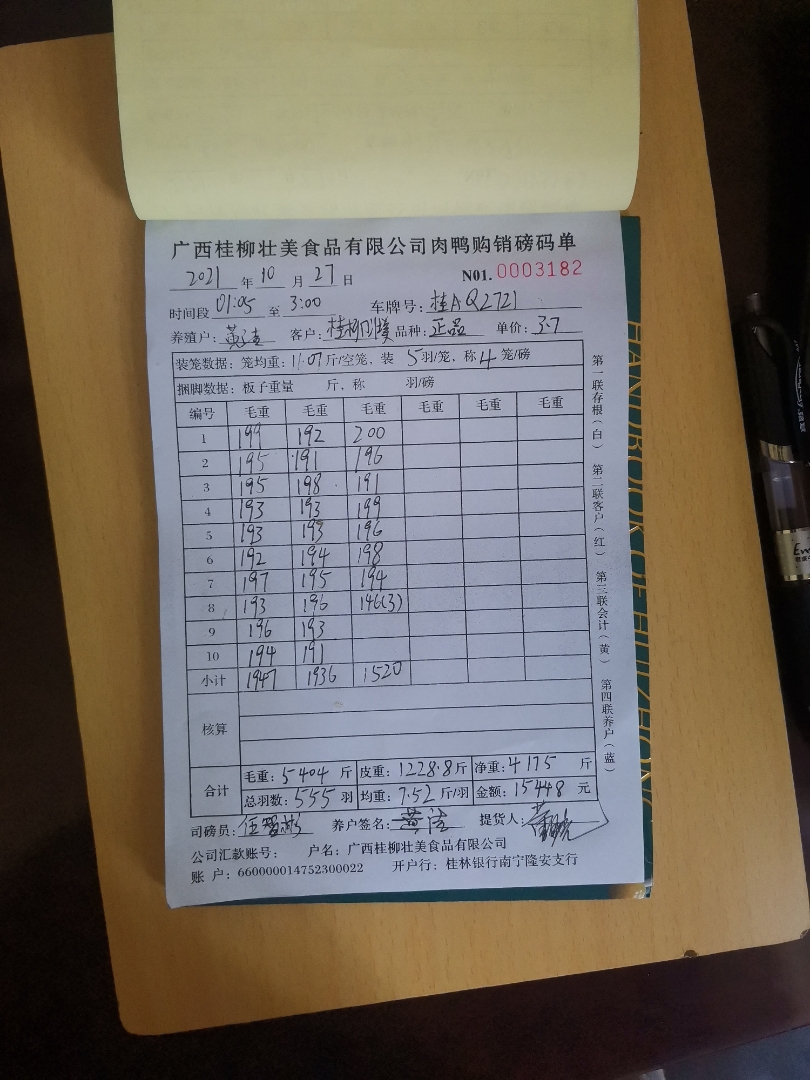 广西桂柳壮美食品有限公司肉鸭购销磅码单
2021 年 10 月 27 日 N01. 0003182
时间段 01:05 至 3:00 车牌号: 桂AQ2721
养殖户: 黄洁 客户: 桂柳 品种: 正品 单价: 3.7
装笼数据: 笼均重: 11.07 斤/空笼, 装 5 羽/笼, 称 4 笼/磅
捆脚数据: 板子重量 斤, 称 羽/磅
编号 毛重 毛重 毛重 毛重 毛重 毛重
1 199 192 200
2 195 191 196
3 195 198 191
4 193 193 199
5 193 193 196
6 192 194 198
7 197 195 194
8 193 196 146(3)
9 196 193
10 194 191
小计 1947 1936 1520
核算
合计
毛重: 5404 斤 皮重: 1228.8 斤 净重: 4175 斤
总羽数: 555 羽 均重: 7.52 斤/羽 金额: 15448 元
司磅员: 养户签名: 黄洁 提货人:
公司汇款账号: 户名: 广西桂柳壮美食品有限公司
账 户: 660000014752300022 开户行: 桂林银行南宁隆安支行
第一联存根(白) 第二联客户(红) 第三联会计(黄) 第四联养户(蓝)
HANDBOOK OF HUIZHONG